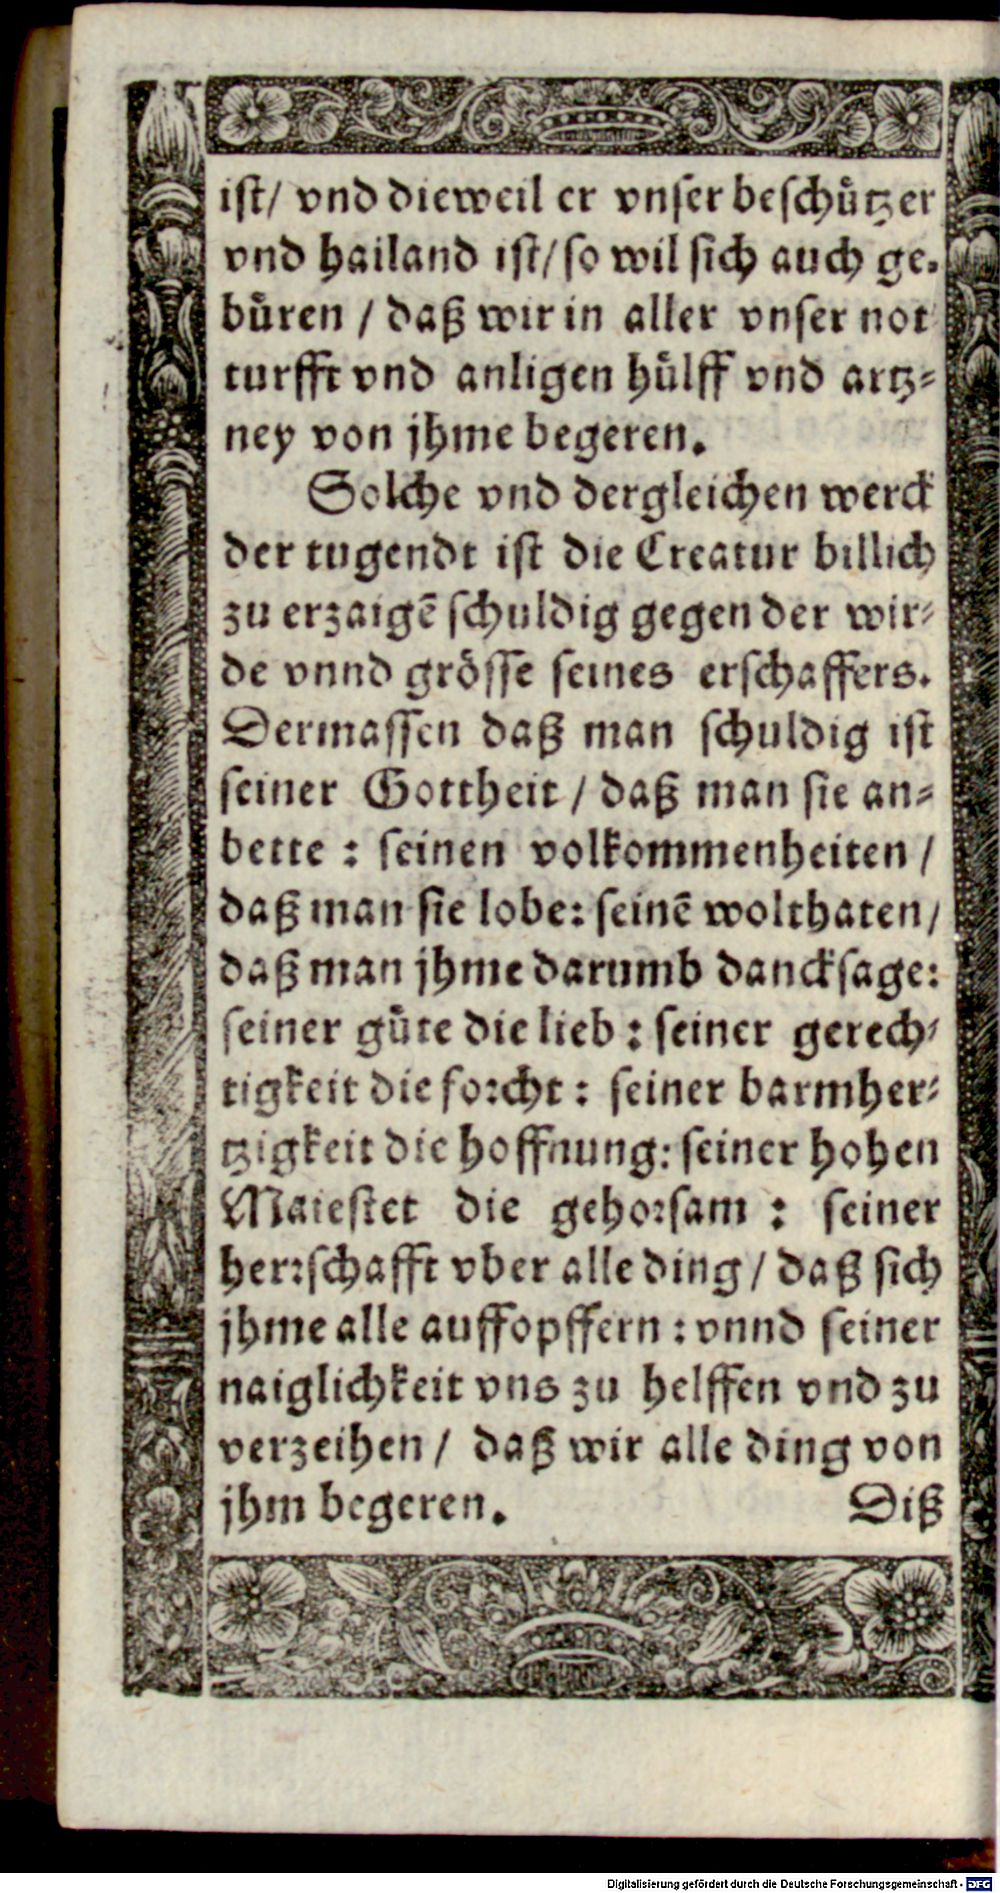 ist/ vnd dieweil er vnser beschützer
vnd hailand ist/ so wil sich auch ge-
büren / daß wir in aller vnser not
turfft vnd anligen hülff vnd artz-
ney von jhme begeren.
Solche vnd dergleichen werck
der tugendt ist die Creatur billich
zu erzaigē schuldig gegen der wir-
de vnnd grösse seines erschaffers.
Dermassen daß man schuldig ist
seiner Gottheit / daß man sie an-
bette : seinen volkommenheiten /
daß man sie lobe: seinē wolthaten/
daß man jhme darumb dancksage:
seiner güte die lieb : seiner gerech-
tigkeit die forcht : seiner barmher-
tzigkeit die hoffnung: seiner hohen
Maiestet die gehorsam : seiner
herrschafft vber alle ding / daß sich
jhme alle auffopffern : vnnd seiner
naiglichkeit vns zu helffen vnd zu
verzeihen / daß wir alle ding von
jhm begeren. Diß
Digitalisierung gefördert durch die Deutsche Forschungsgemeinschaft - DFG